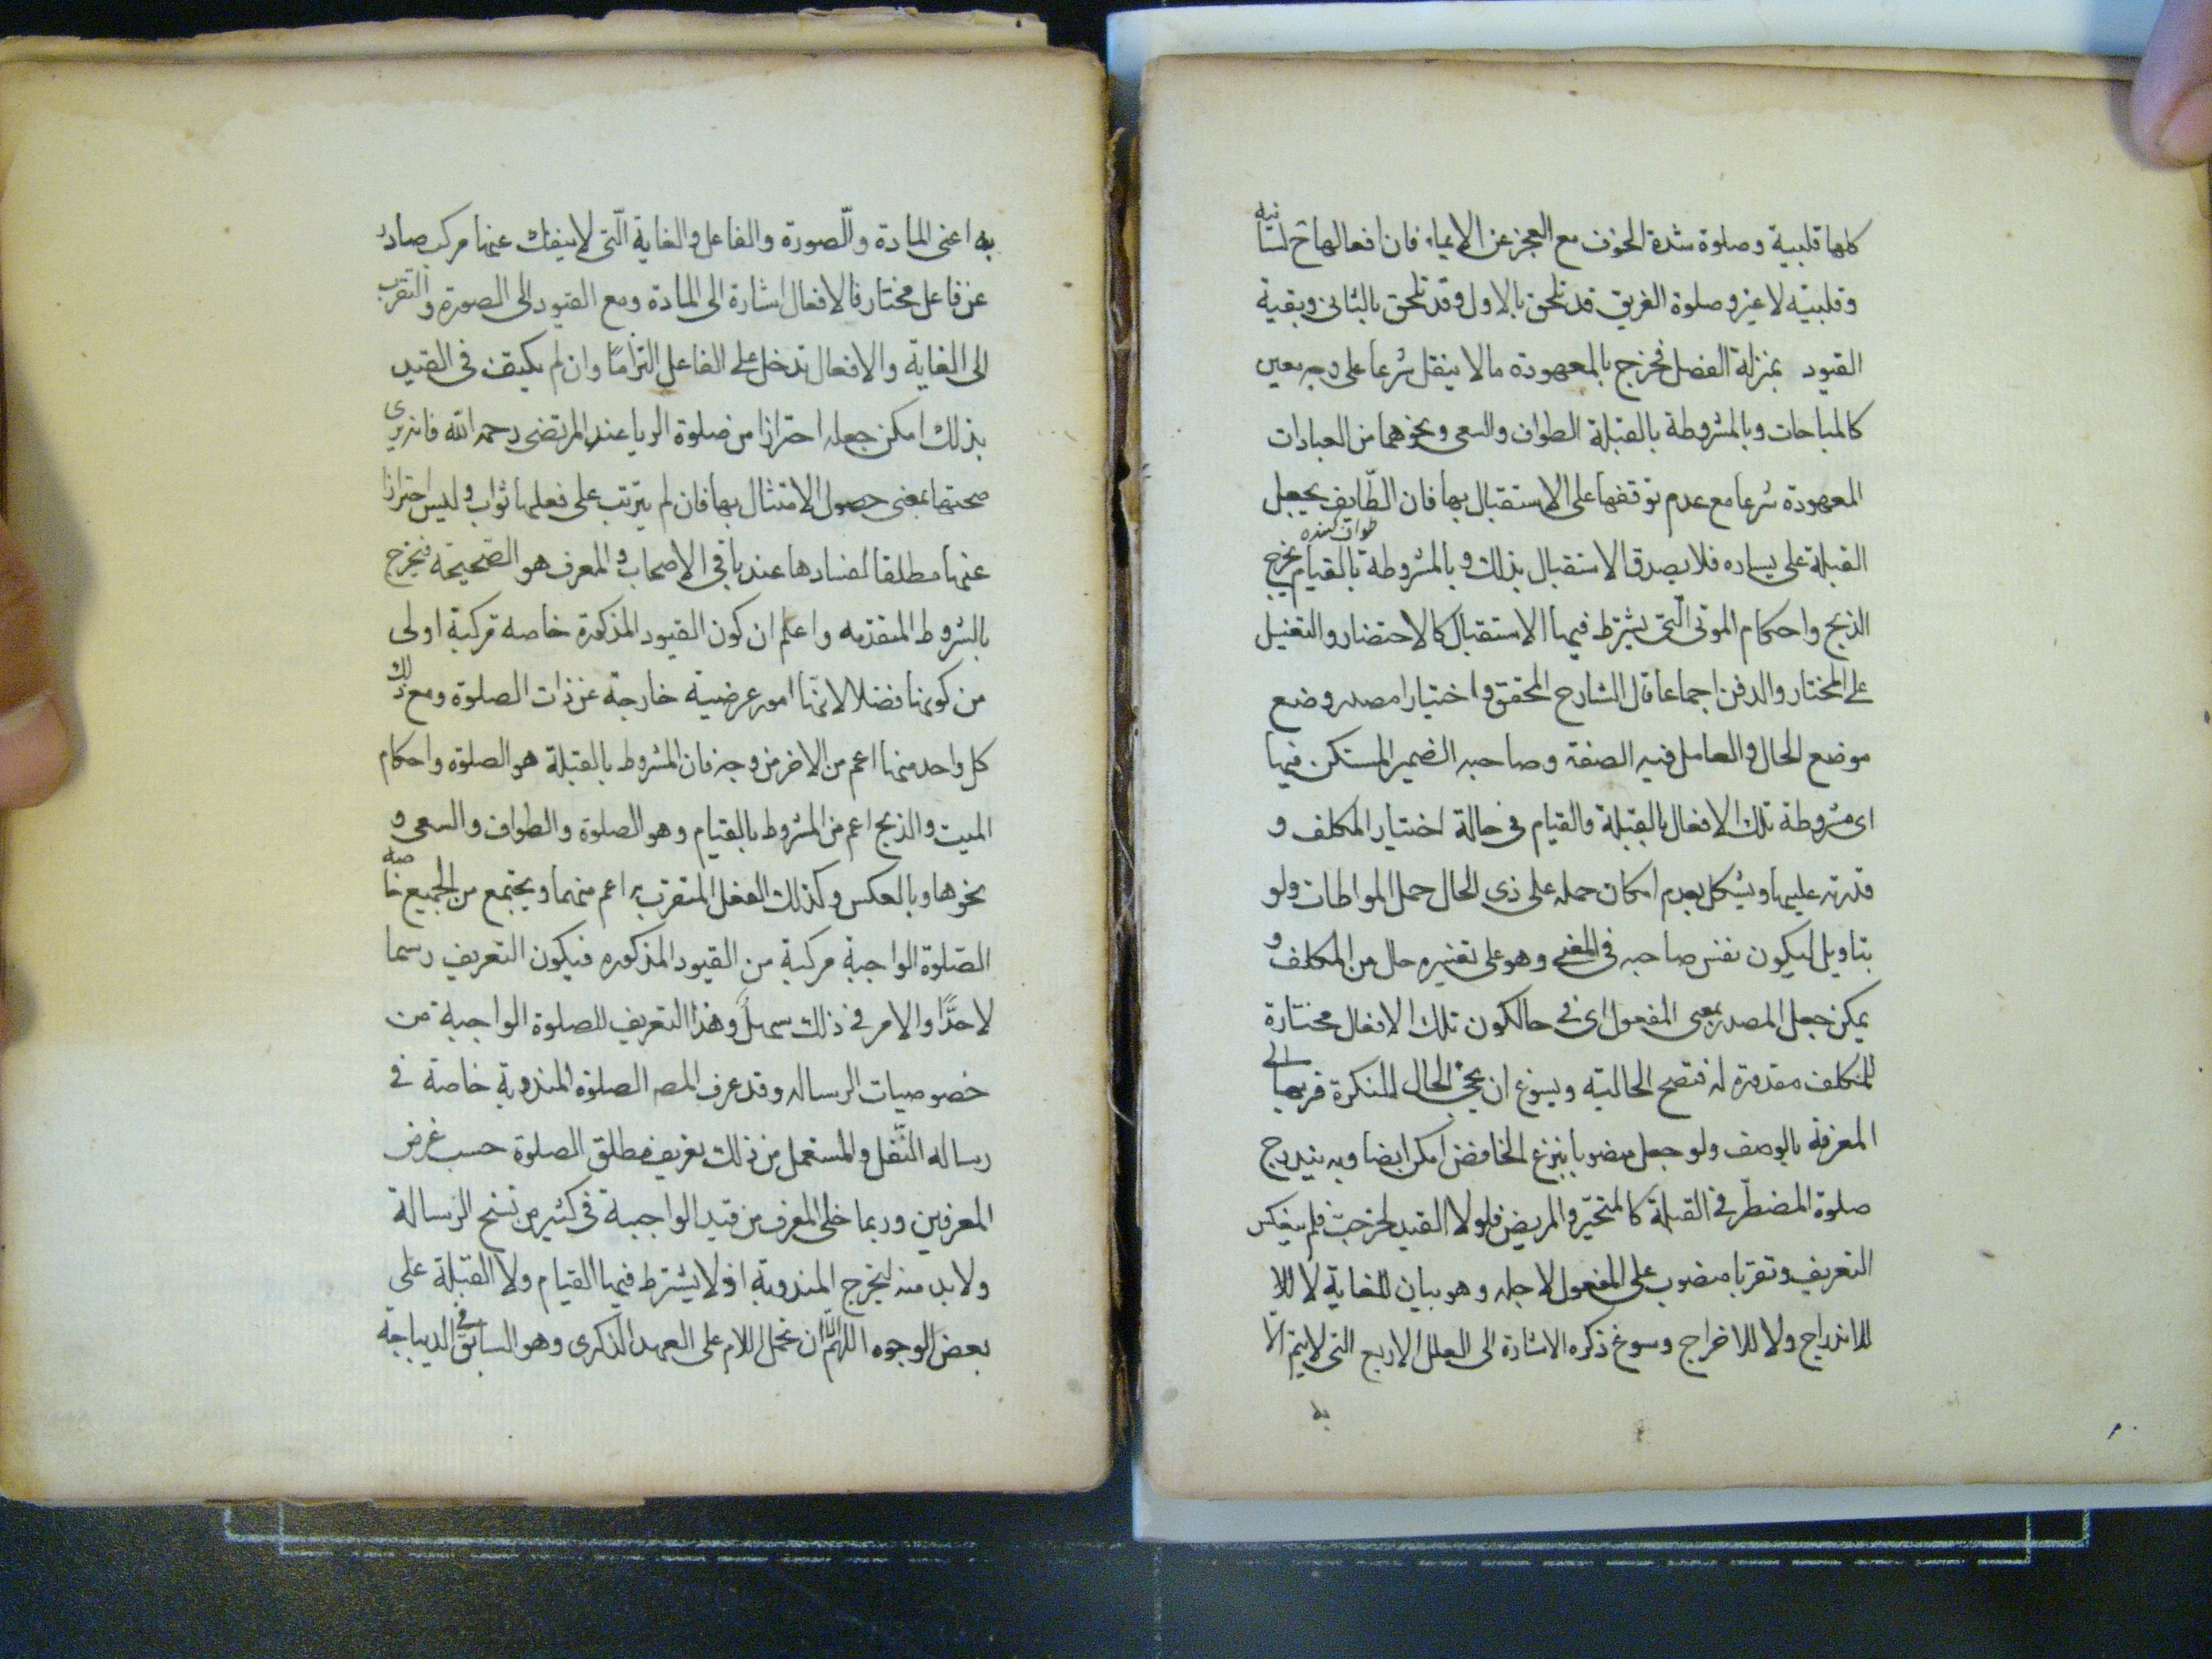 كلها قلبية وصلوة شدة الخوف مع العجز عن الايماء فان افعالها ح لسانيه
وقلبيه لا غير وصلوة الغريق قد تلحق بالاول وقد تلحق بالثانى وبقية
القيود بمنزلة الفصل فخرج بالمعهودة مالا ينقل شرعا على وجه معين
كالمباحات وبالمشروطة بالقبلة الطواف والسعى ونحوهما من العبادات
المعهودة شرعا مع عدم توقفها على الاستقبال بها فان الطّايف يجعل
طواف كننده
القبلة على يساره فلا يصدق الاستقبال بذلك وبالمشروطة بالقيام يخرج
الذبح واحكام الموتى الّتى يشترط فيها الاستقبال كالاحتضار والتغسيل
على المختار والدفن اجماعا قال الشارح المحقق واختيارا مصدر وضع
موضع الحال والعامل فيه الصفة وصاحبه الضمير المستكن فيها
اى مشروطة تلك الافعال بالقبلة والقيام فى حالة اختيار المكلف و
قدرته عليها ويشكل بعدم امكان حمله على ذى الحال حمل المواطات ولو
بتاويل ليكون نفس صاحبه فى المعنى وهو على تفسيره حال من المكلف و
يمكن جعل المصدر بمعنى المفعول اى فى حالكون تلك الافعال مختارة
للمكلف مقدورة له فتصح الحالية ويسوغ ان يجئ الحال للنكرة قربها الى
المعرفة بالوصف ولو جعل منصوبا بنزع الخافض امكن ايضا وبه يندرج
صلوة المضطرّ فى القبلة كالمتحيّر والمريض فلولا القيد لخرجت فلم ينعكس
التعريف وتقربا منصوب على المفعول لاجله وهو بيان للغاية لا للا
للاندراج ولا للاخراج وسوغ ذكره الاشارة الى العلل الاربع التى لا يتم الّا
به
به اعنى المادة والّصورة والفاعل والغاية الّتى لا ينفك عنها مركب صادر
عن فاعل مختار فالافعال اشارة الى المادة ومع القيود الى الصورة والتقرب
الى الغاية والافعال تدخل على الفاعل التزامًا وان لم يكتف فى القيد
بذلك امكن جعله احترازا من صلوة الريا عند المرتضى رحمه الله فانه يرى
صحتها بمعنى حصول الامتثال بها فان لم يترتب على فعلها ثواب وليس احترازا
عنها مطلقا لفسادها عند باقى الاصحاب والمعرف هو الصّحيحة فيخرج
بالشروط المتقدمه واعلم ان كون القيود المذكورة خاصه مركبة اولى
من كونها فصلا لانّها امور عرضية خارجة عن ذات الصلوة ومع ذلك
كل واحد منها اعم من الاخر من وجه فان المشروط بالقبلة هو الصلوة واحكام
الميت والذبح اعم من المشروط بالقيام وهو الصلوة والطواف والسعى و
نحوها وبالعكس وكذلك الفعل المتقرب به اعم منهما ويجتمع من الجميع خاصه
الصّلوة الواجبة مركبة من القيود المذكوره فيكون التعريف رسما
لا حدًّا والامر فى ذلك سهل وهذا التعريف للصلوة الواجبة من
خصوصيات الرساله وقد عرف المصه الصلوة المندوبة خاصة فى
رساله النّفل والمستعمل من ذلك تعريف مطلق الصلوة حسب غرض
المعرفين وربما خلى المعرف من قيد الواجبة فى كثير من نسخ الرسالة
ولا بد منه ليخرج المندوبة اذ لا يشترط فيها القيام ولا القبلة على
بعض الوجوه اللهمّ الّا ان تحمل اللام على العهد الذكرى وهو السابق فى الديباجة